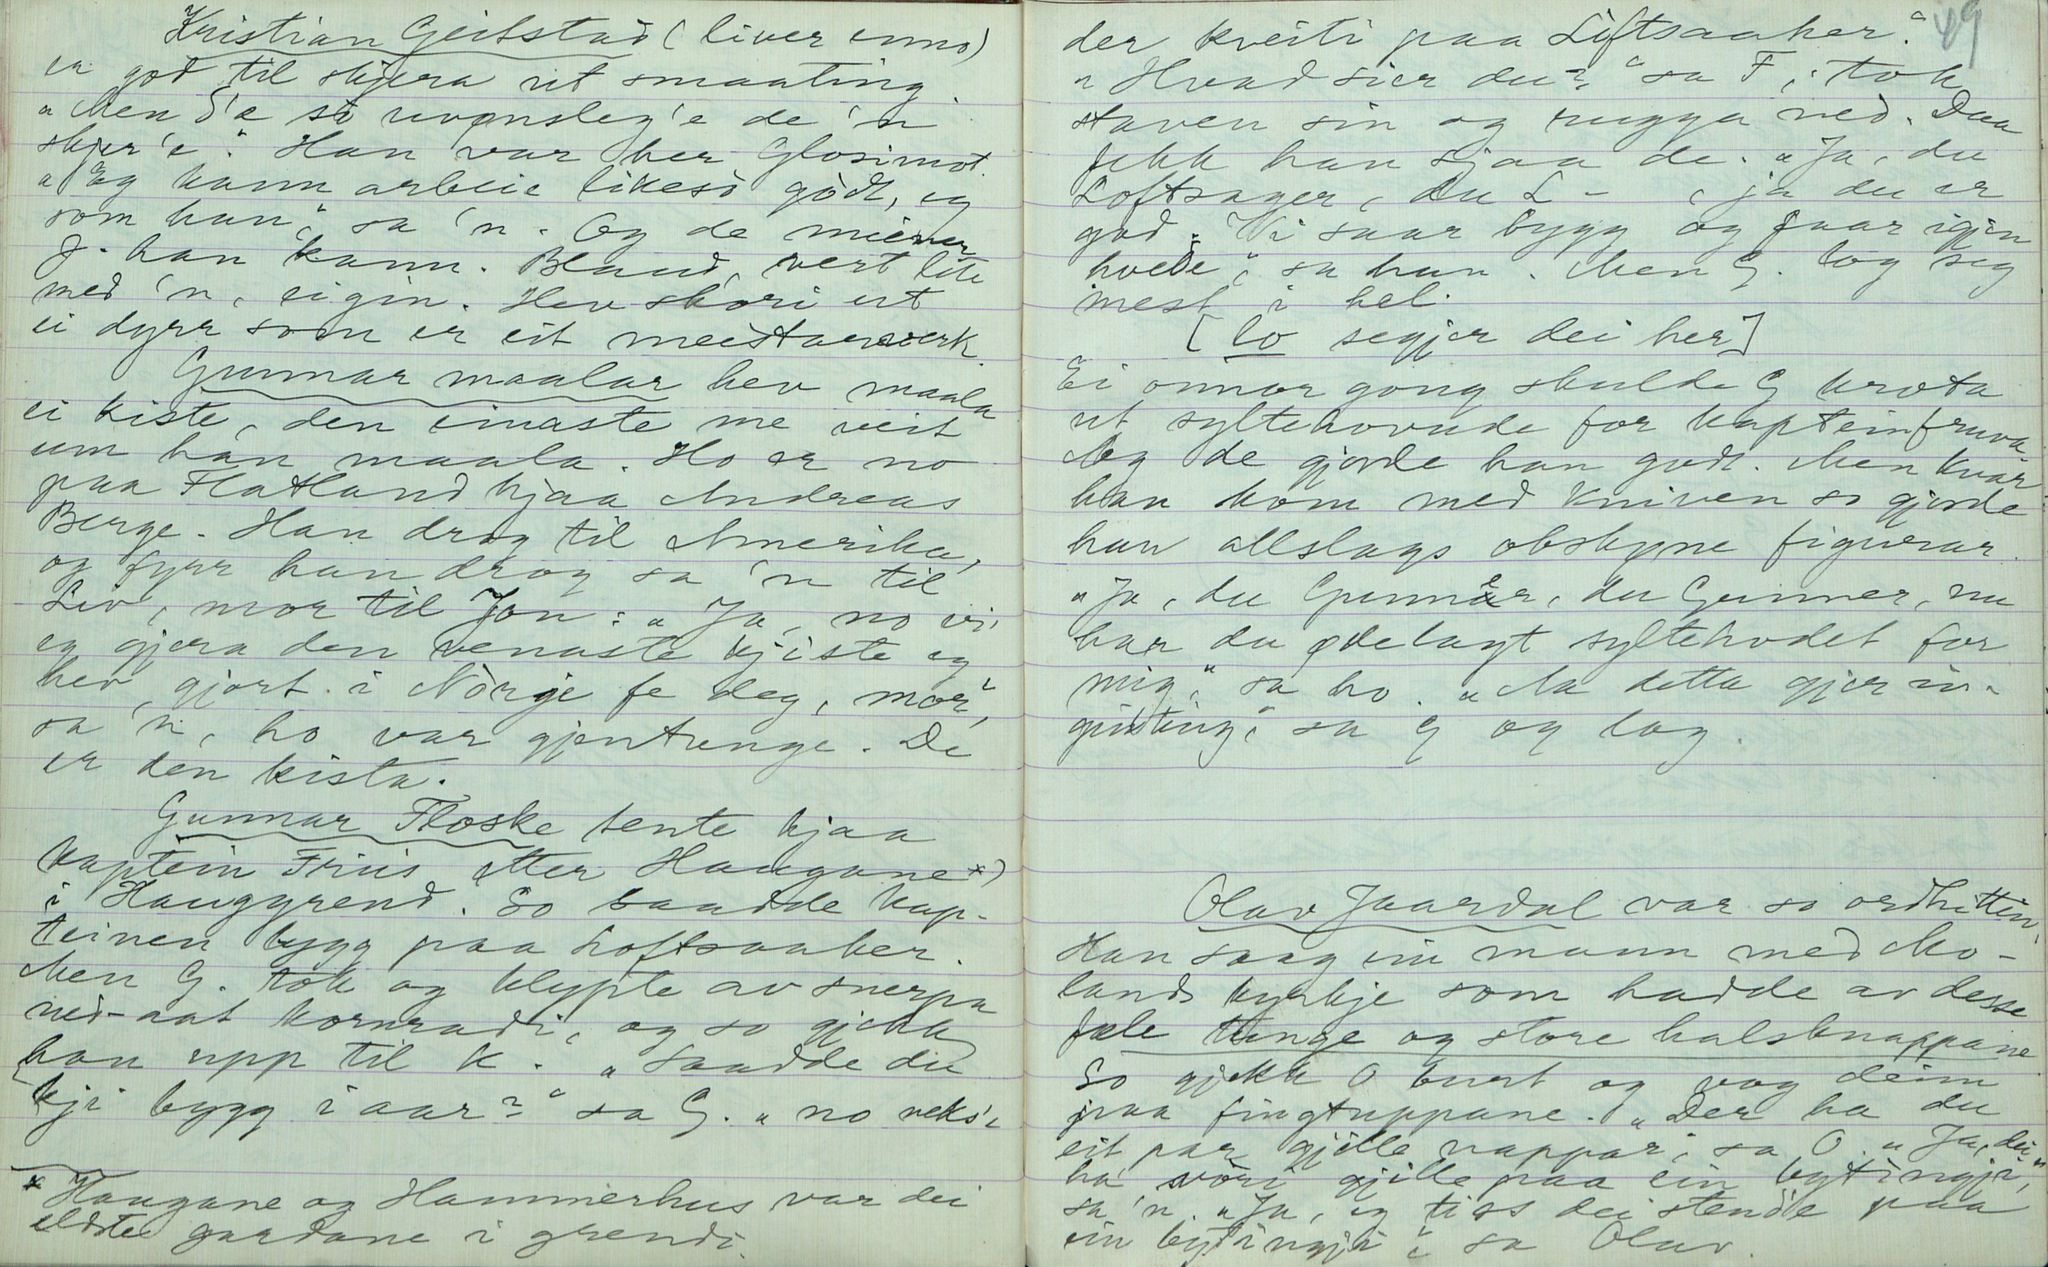 Kristian Geitstad (liver enno)
er god til skjera ut smaating.
"Men d'e so uvonsleg'e de 'n
skjer'e." Han var her Glosimot.
"Eg kann arbeie likeso godt, eg
som han," sa 'n. Og de meiner
J. han kann. Bland, vert lite
med 'n, eigin. Hev skori ut
ei dyrr som er eit meistarverk.
Gunnar maalar hev maala
ei kiste, den einaste me veit
um han maala. Ho er no
paa Flatland hjaa Andreas
Berge. Han drog til Amerika,
og fyrr han drog sa 'n til
Liv, mor til Jon: "Ja, no vi
eg gjera den venaste kjiste eg
hev gjort i Norge fe deg, mor",
sa 'n, ho var gjentunge. De
er den kista.
Gunnar Floske tente hjaa
kaptein Friis etter Haugane *)
i Hauggrend. So saadde kap-
teinen bygg paa Loftsaaker.
Men G. tok og klypte av snerpa
ned-aat kornradi, og so gjekk
han upp til K. "Saadde du
kji bygg i aar?" sa G. "no veks'e
* Haugane og Hammerhus var dei
eldste gardane i grendi.
49
der kveiti paa Liftsaaker."
"Hvad sier du?" sa F, tok
staven sin og rugga ned. Daa
fekk han sjaa de. "Ja, du
Loftsager, du L - , ja du er
god. Vi saar bygg og faar igjen
hvede," sa han. Men G. log seg
mest i hel.
[lo segjer dei her]
Ei onnor gong skulde G krota
ut syltehovude for kapteinfruva.
Og de gjorde han godt. Men kvar
han kom med kniven so gjorde
han allslags obskyne figurar.
"Ja, du Gunner, du Gunner, nu
har du ødelagt syltehodet for
mig," sa ho. "Aa detta gjer in-
ginting," sa G og log.
Olav Jaardal var so ordhittin.
Han saag ein mann med Mo-
lands kyrkje som hadde av desse
fæle tunge og store halsknappane
So gjekk O burt og vog deim
paa fingtuppane. "Der ha du
eit par gjille nappar," sa O. "Ja, dei
ha vori gjille paa ein bytingji,"
sa 'n. "Ja, eg tiss dei stende paa
ein bytingji", sa Olav.